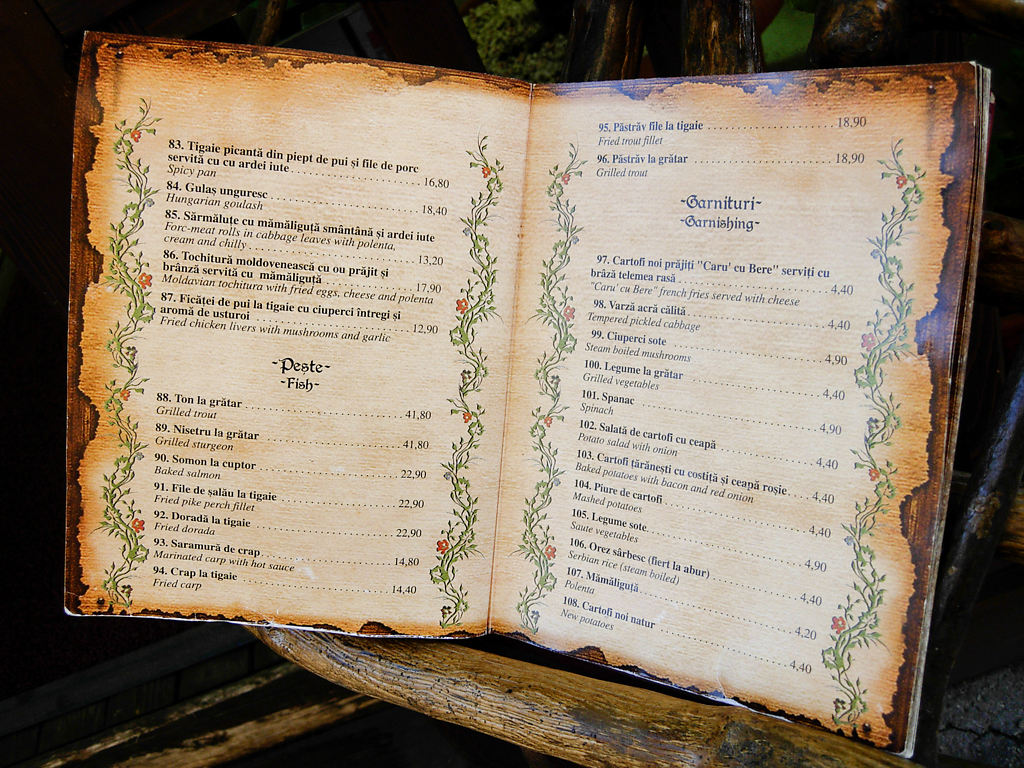 83. Tigaie picantă din piept de pui și file de porc
servită cu cu ardei iute 16,80
Spicy pan
84. Gulaș unguresc 18,40
Hungarian goulash
85. Sărmăluțe cu mămăliguță smântână și ardei iute
Forc-meat rolls in cabbage leaves with polenta,
cream and chilly 13,20
86. Tochitură moldovenească cu ou prăjit și
brânză servită cu mămăliguță 17,90
Moldavian tochitura with fried eggs, cheese and polenta
87. Ficăței de pui la tigaie cu ciuperci întregi și
aromă de usturoi 12,90
Fried chicken livers with mushrooms and garlic
-Pește-
-Fish-
88. Ton la grătar 41,80
Grilled trout
89. Nisetru la grătar 41,80
Grilled sturgeon
90. Somon la cuptor 22,90
Baked salmon
91. File de șalău la tigaie 22,90
Fried pike perch fillet
92. Doradă la tigaie 22,90
Fried dorada
93. Saramură de crap 14,80
Marinated carp with hot sauce
94. Crap la tigaie 14,40
Fried carp
95. Păstrăv file la tigaie 18,90
Fried trout fillet
96. Păstrăv la grătar 18,90
Grilled trout
-Garnituri-
-Garnishing-
97. Cartofi noi prăjiți "Caru' cu Bere" serviți cu
brâză telemea rasă 4,40
"Caru' cu Bere" french fries served with cheese
98. Varză acră călită 4,40
Tempered pickled cabbage
99. Ciuperci sote 4,90
Steam boiled mushrooms
100. Legume la grătar 4,40
Grilled vegetables
101. Spanac 4,90
Spinach
102. Salată de cartofi cu ceapă 4,40
Potato salad with onion
103. Cartofi țărănești cu costiță și ceapă roșie 4,40
Baked potatoes with bacon and red onion
104. Piure de cartofi 4,40
Mashed potatoes
105. Legume sote 4,90
Saute vegetables
106. Orez sârbesc (fiert la abur) 4,40
Serbian rice (steam boiled)
107. Mămăliguță 4,20
Polenta
108. Cartofi noi natur 4,40
New potatoes